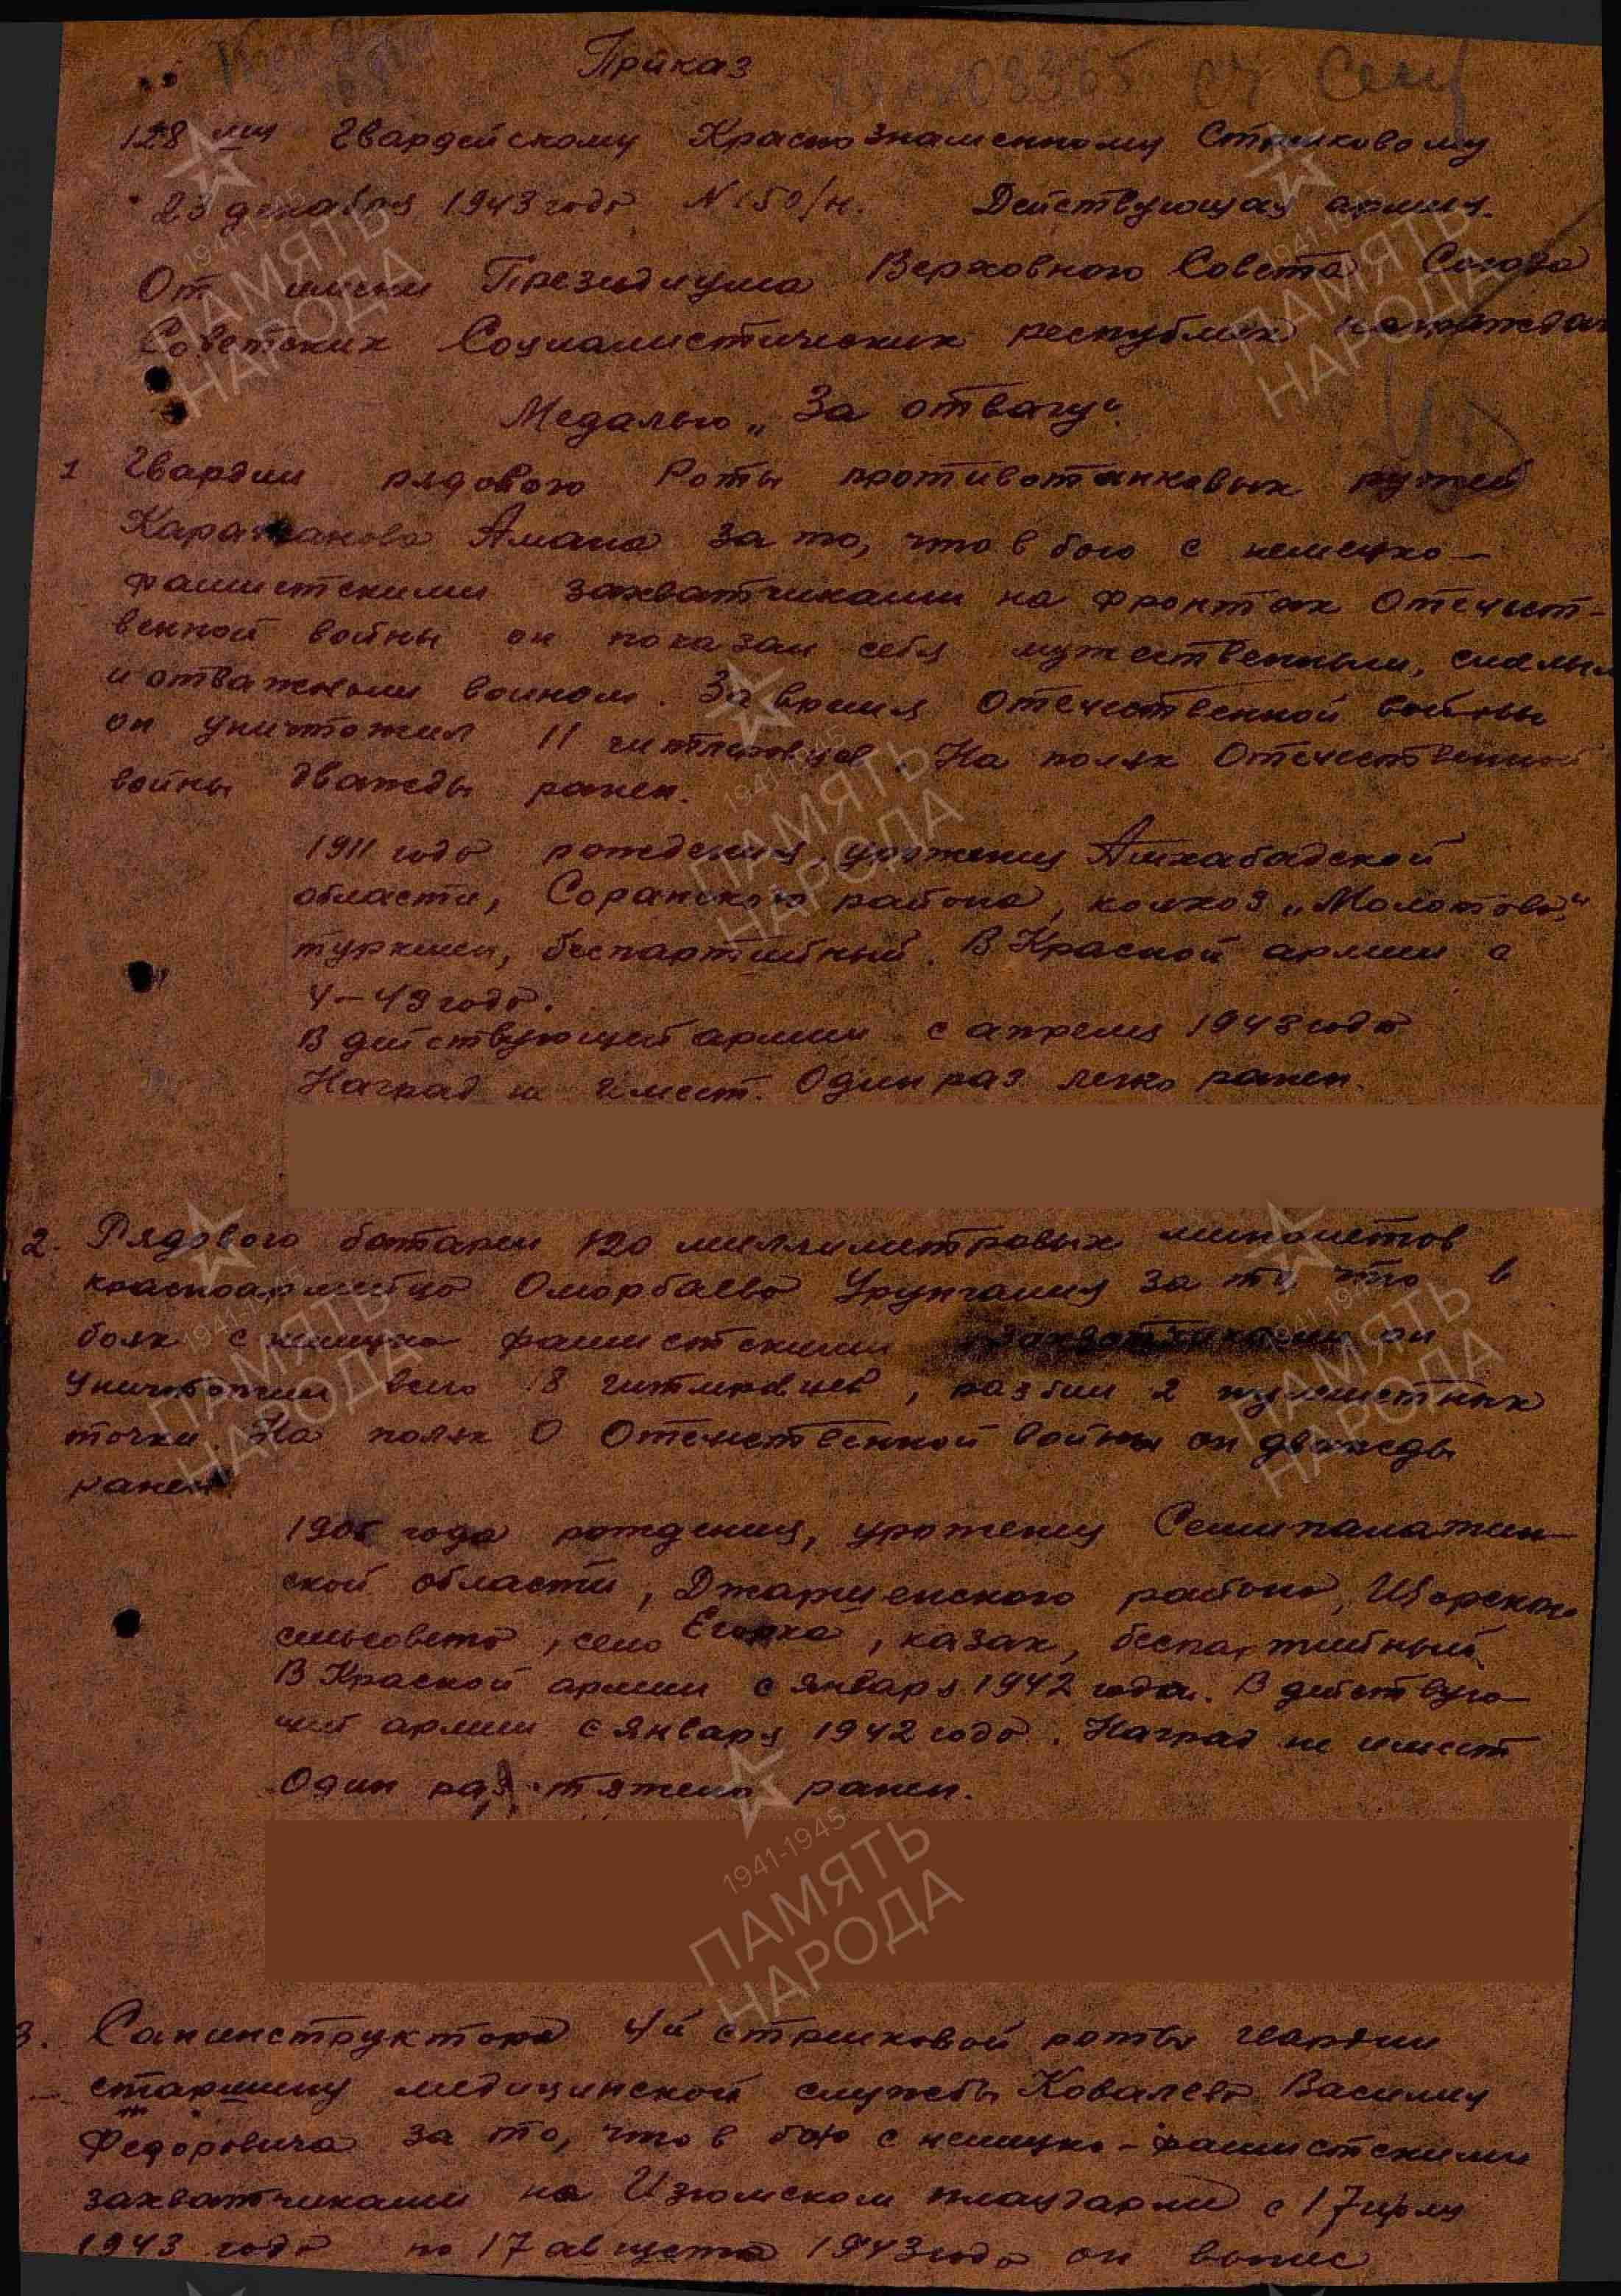 Приказ
128 му Гвардейскому Краснознаменному Стрелковому
23 декабря 1943 года N 50/н. Действующая армия.
От имени Президиума Верховного Совета Союза
Советских Социалистических республик награждаю
Медалью „За отвагу“.
1 Гвардии рядового Роты противотанковых ружей
Амана за то, что в бою с немецко-
фашистскими захватчиками на фронтах Отечест-
венной войны он показал себя мужественным, смелым
и отважным воином. За время Отечественной войны
он уничтожил 11 гитлеровцев. На полях Отечественной
войны дважды ранен.
1911 года рождения, уроженец Ашхабадской
области, района, колхоз „Молотова“
туркмен, беспартийный. В Красной армии с
4-43 года.
В действующей армии с апреля 1943 года
Наград не имеет. Один раз легко ранен.
2. Рядового батареи 120 миллиметровых минометов
красноармейца Оморбаева за то, что в
боях с немецко фашистскими захватчиками он
уничтожил всего 18 гитлеровцев, разбил 2 пулеметных
точки. На полях О Отечественной войны он дважды
ранен.
года рождения, уроженец Семипалатин-
ской области, района,
сельсовета, село казак, беспартийный.
В Красной армии с января 1942 года. В действую-
щей армии с января 1942 года. Наград не имеет
Один раз тяжело ранен.
3. Санинструктора 4й стрелковой роты гвардии
старшину медицинской службы Ковалева Василия
Федоровича за то, что в бою с немецко-фашистскими
захватчиками на Изюмском плацдарме с 17 июля
1943 года по 17 августа 1943 года он вынес
ПАМЯТЬ НАРОДА
1941-1945